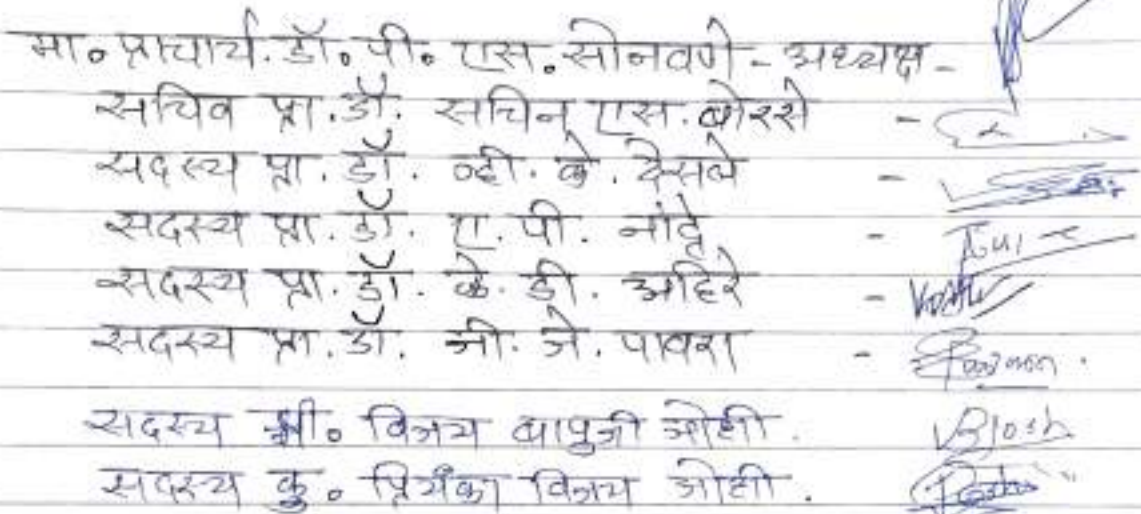 मा. प्राचार्य. डॉ. पी. एस. सोनवणे - अध्यक्ष -
सचिव प्रा. डॉ. सचिन एस. बोरसे -
सदस्य प्रा. डॉ. व्ही. के. देसले -
सदस्य प्रा. डॉ. ए. पी. नांद्रे -
सदस्य प्रा. डॉ. के. डी. अहिरे -
सदस्य प्रा. डॉ. जी. जे. पावरा -
सदस्य श्री. विजय बापुजी जोशी.
सदस्य कु. प्रियंका विजय जोशी.